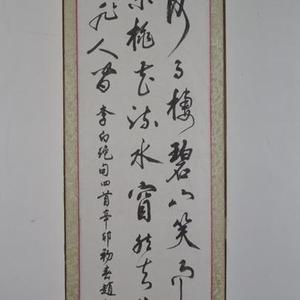 何事棲碧山笑而
桃花流水窅然去
非人間 李白絕句四首辛卯初春趙